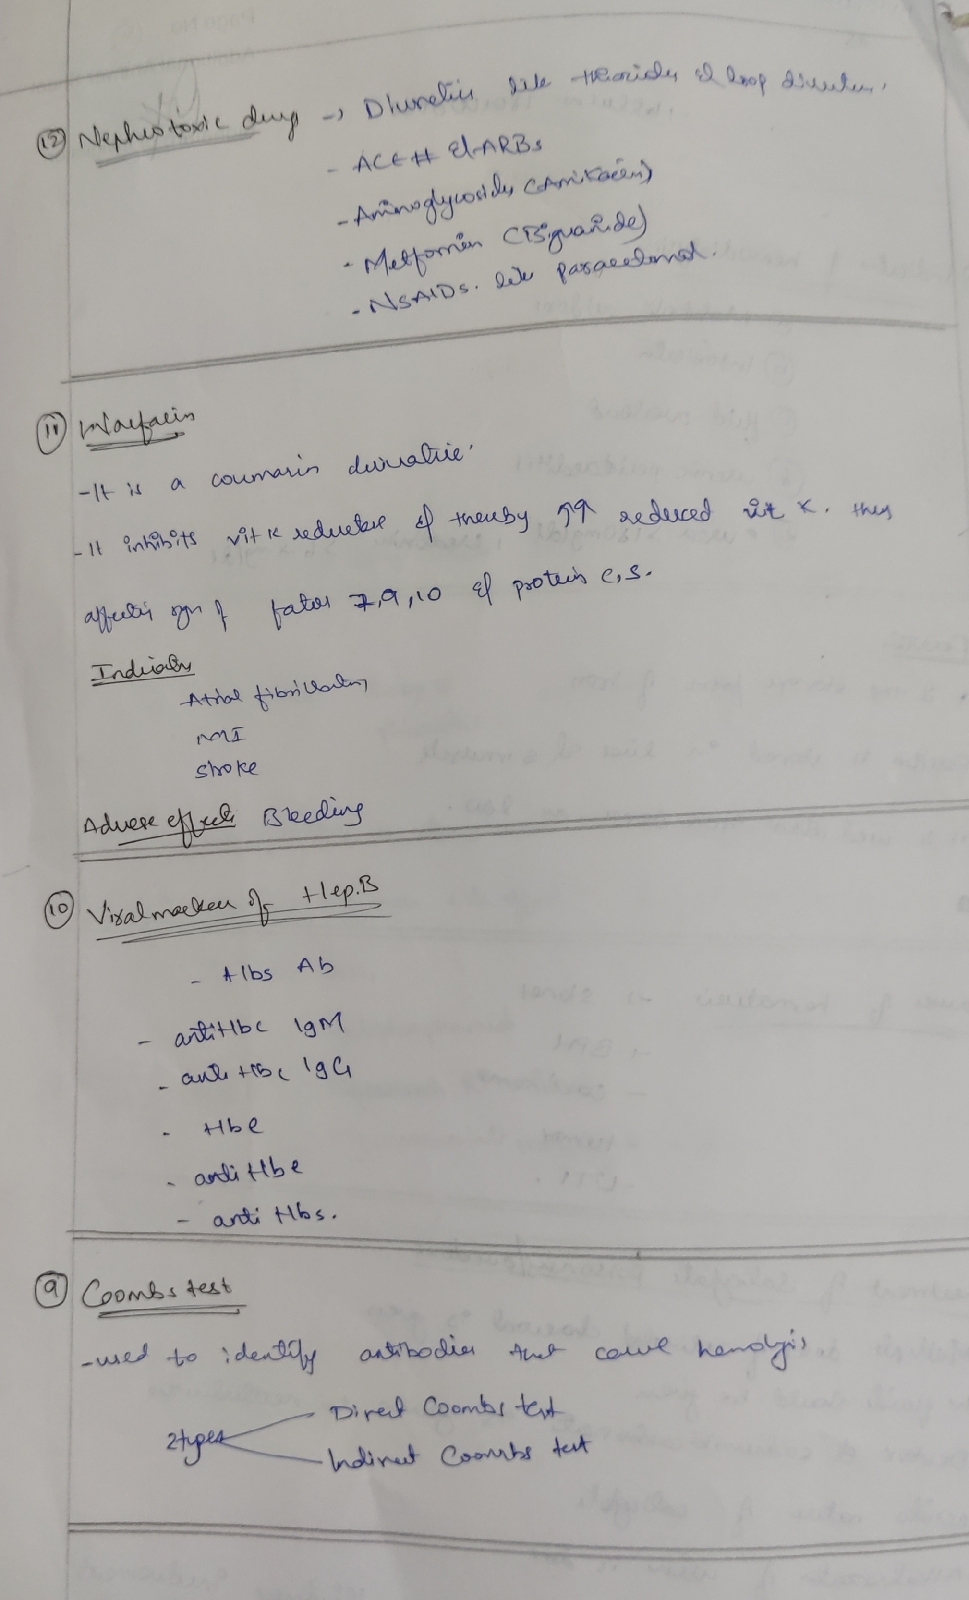 (12) Nephrotoxic drug -> Diuretics like thiazides & loop diuretics.
- ACE # & ARBs
- Aminoglycosides (Amikacin)
- Metformin (Biguanide)
- NSAIDs. like paracetamol.
(11) Warfarin
- It is a coumarin derivative.
- It inhibits vit K reductase & thereby ↑↑ reduced vit K. thus
affects syn of factor 7,9,10 & protein C,S.
Indications
Atrial fibrillation
MI
stroke
Adverse effects Bleeding
(10) Viral marker of Hep.B
- Hbs Ab
- anti Hbc IgM
- anti Hbc IgG
- Hbe
- anti Hbe
- anti Hbs.
(9) Coombs test
- used to identify antibodies that cause hemolysis
2 types
Direct Coombs test
Indirect Coombs test